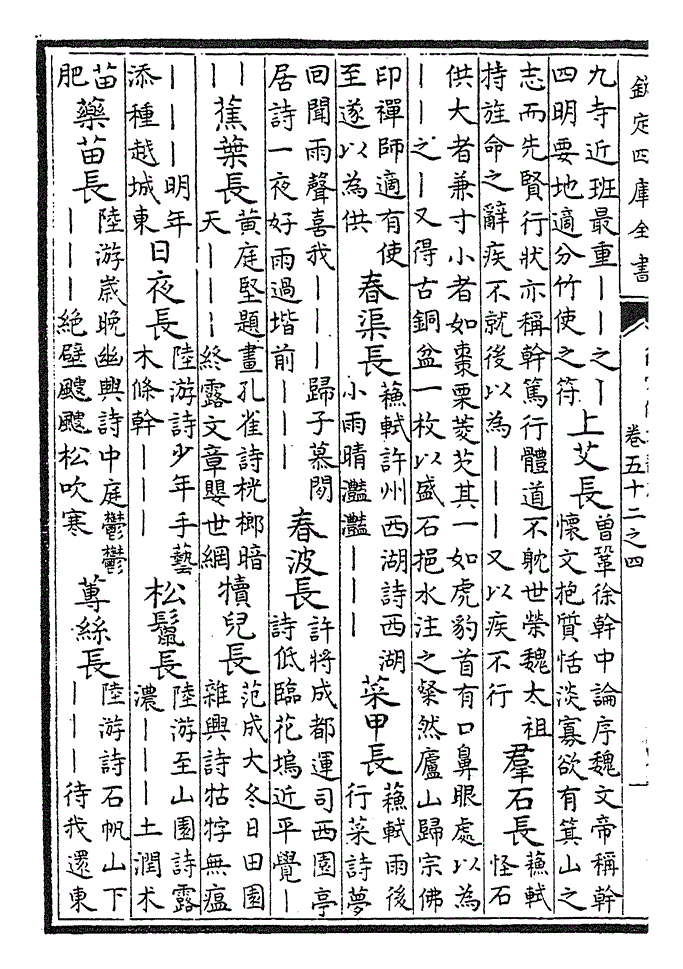 欽定四庫全書
卷五十二之四
九寺近班最重丨丨之丨
四明要地適分竹使之符
上艾長
曾鞏徐幹中論序魏文帝稱幹
懷文抱質恬淡寡欲有箕山之
志而先賢行狀亦稱幹篤行體道不耽世榮魏太祖
持旌命之辭疾不就後以為丨丨丨又以疾不行
羣石長
蘓軾
怪石
供大者兼寸小者如棗栗菱芡其一如虎豹首有口鼻眼處以為
丨丨之丨又得古銅盆一枚以盛石挹水注之粲然廬山歸宗佛
印禪師適有使
至遂以為供
春渠長
蘓軾許州西湖詩西湖
小雨晴灔灔丨丨丨
菜甲長
蘓軾雨後
行菜詩夢
回聞雨聲喜我丨丨丨歸子慕閒
居詩一夜好雨過堦前丨丨丨
春波長
許將成都運司西園亭
詩低臨花塢近平覺丨
丨
丨
蕉葉長
黄庭堅題畫孔雀詩桄榔暗
天丨丨丨終露文章嬰世網
犢兒長
范成大冬日田園
雜興詩牯牸無瘟
丨丨丨明年
添種越城東
日夜長
陸游詩少年手藝
木條幹丨丨丨
松鬛長
陸游至山園詩露
濃丨丨丨土潤术
苗
肥
藥苗長
陸游歲晚幽興詩中庭鬱鬱
丨丨丨絶壁颼颼松吹寒
蓴絲長
陸游詩石帆山下
丨丨丨待我還東